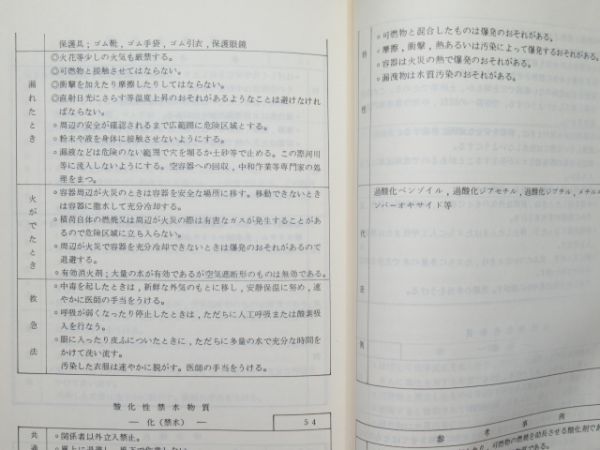 保護具；ゴム靴，ゴム手袋，ゴム引衣，保護眼鏡
漏れたとき
◎火花等少しの火気も厳禁する。
◎可燃物と接触させてはならない。
◎衝撃を加えたり摩擦したりしてはならない。
◎直射日光にさらす等温度上昇のおそれがあるようなことは避けなけれ
ばならない。
○周辺の安全が確認されるまで広範囲に危険区域とする。
○粉末や液を身体に接触させないようにする。
○漏液などは危険のない範囲で穴を堀るか土砂等で止める。この際河川
等に流入しないようにする。空容器への回収，中和作業等専門家の処
理をまつ。
火がでたとき
○容器周辺が火災のときは容器を安全な場所に移す。移動できないとき
は容器に灌水して充分冷却する。
○積荷自体の燃焼又は周辺が火災の際は有害なガスが発生することがあ
るので危険区域に立ち入らない。
○周辺が火災で容器を充分冷却できないときは爆発のおそれがあるので
退避する。
○有効消火剤；大量の水が有効であるが空気遮断形のものは無効である。
救急法
○中毒を起したときは，新鮮な外気のもとに移し，安静保温に努め，速
やかに医師の手当をうける。
○呼吸が弱くなったり停止したときは，ただちに人工呼吸または酸素吸
入を行なう。
○眼に入ったり皮ふについたときに，ただちに多量の水で充分な時間を
かけて洗い流す。
汚染した衣服は速やかに脱がす。医師の手当をうける。
酸化性禁水物質
― 化（禁水） ―
54
共
○関係者以外立入禁止。
特性
○可燃物と混合したものは爆発のおそれがある。
○摩擦，衝撃，熱あるいは汚染によって爆発するおそれがある。
○容器は火災の熱で爆発のおそれがある。
○漏洩物は水質汚染のおそれがある。
代
例
過酸化ベンゾイル，過酸化ジアセチル，過酸化ジブチル，メチル
ンパーオヤサイド等
参考事例
可燃物の燃焼を助長させる酸化剤であ